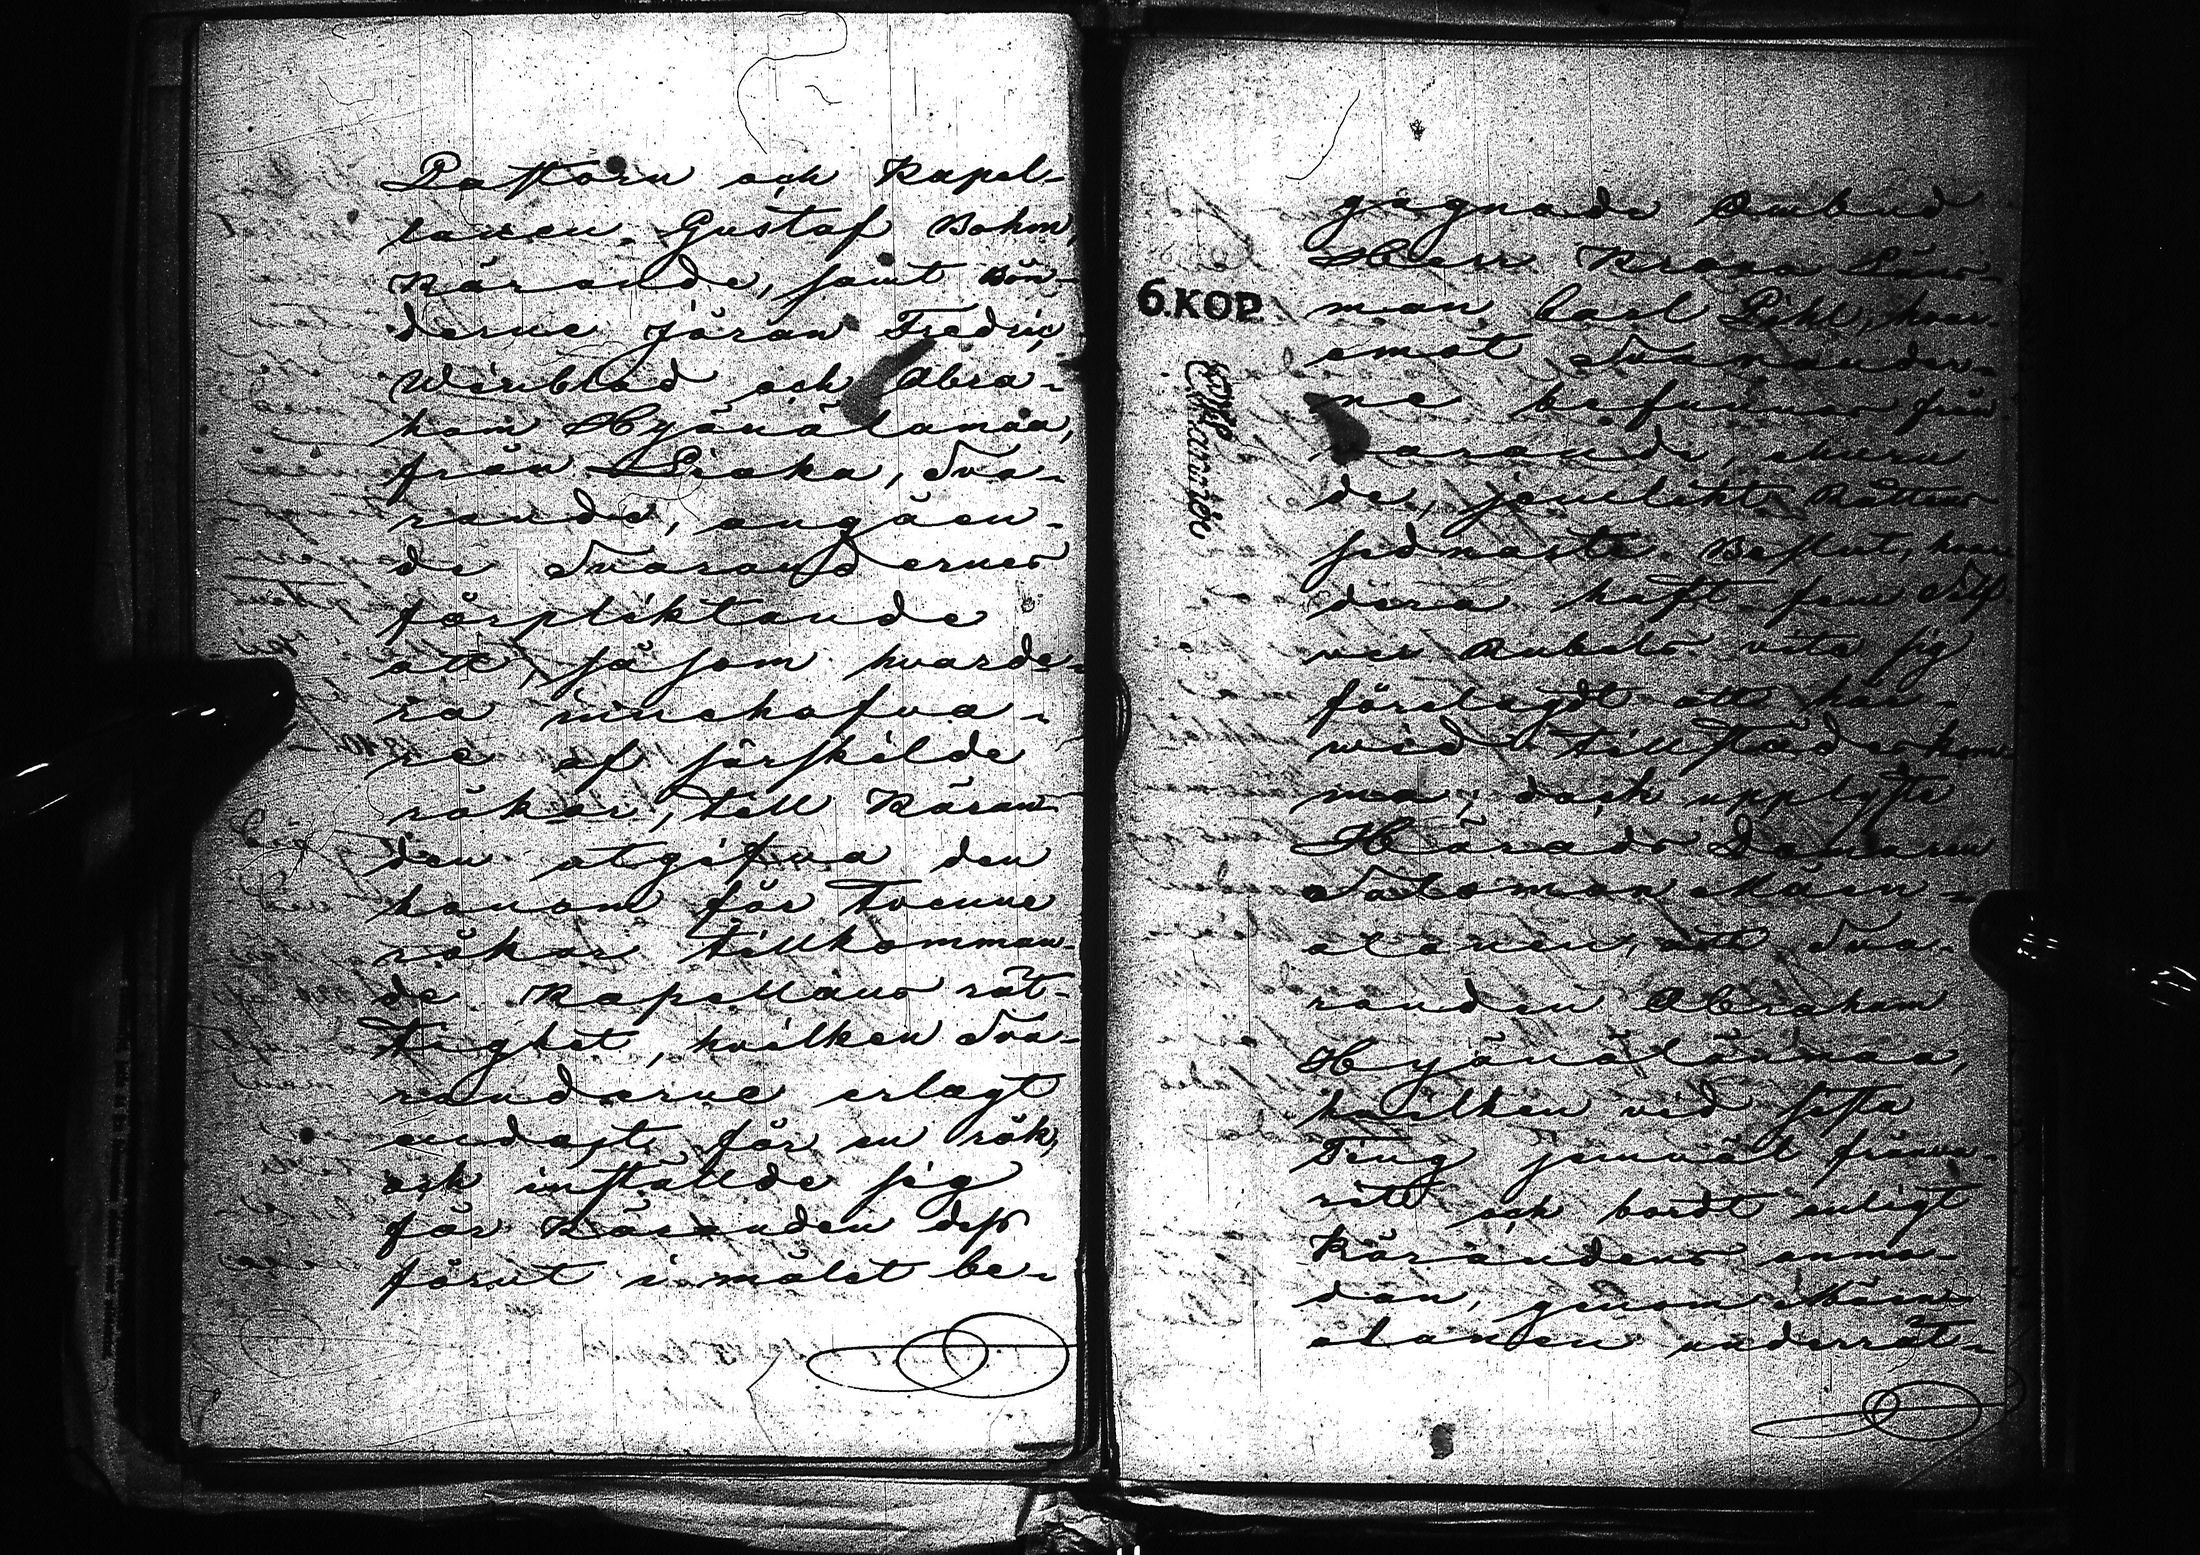 Pastorn och Kapel-
lanen Gustaf Bohm,
Kärande, samt Bön-
derne Jöran Fredric
Winblad och Abra-
ham Hyönälamaa,
från Liaka, Sva-
rande, angåen-
de Svarandernes
förpliktande
att såsom hvarde-
ra innehafva-
re af särskilde
rökar, till Käran-
den utgifva den
honom för tvenne
rökar tillkomman-
de Kapellans rät-
tighet, hvilken Sva-
randerne erlagt
endast för en rök,
och inställde sig
för Käranden dess
förut i målet be-
gagnade Ombud
Herr Krono Läns-
man Carl Pihl, hvar-
emot Svarander-
ne befunnos från-
varande, ehuru
de, jemlikt Rättens
sednaste Beslut, hvar-
dera haft fem Silf-
ver Rubels vite sig
förelagdt att här-
wid tillstädeskom-
ma; dock upplyste
Härads Domaren
Salomon Määt-
alanen, att Sva-
randen Abraham
Hyönälänmaa,
hvilken vid sista
Ting jemväl fråva-
rit och bordt enligt
Kärandens anmo-
dan, genom
alanen underrät-
6.KOP.